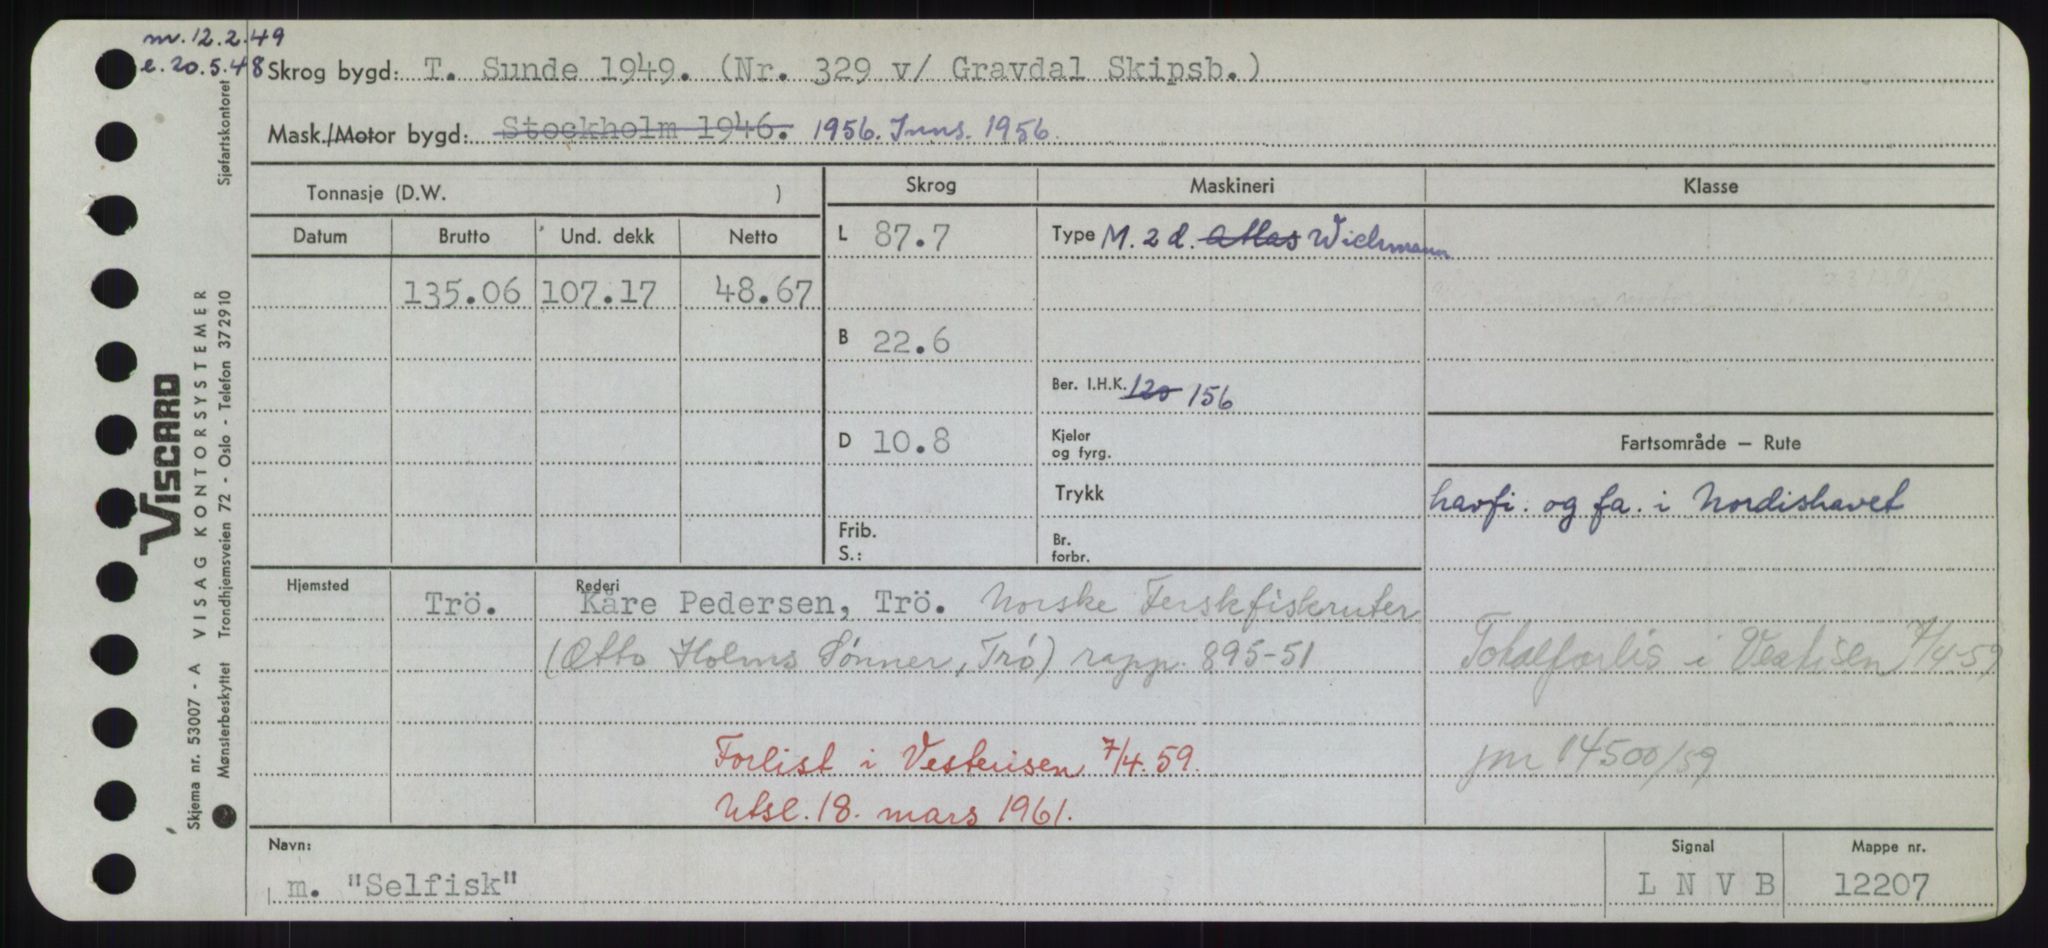 m. 12.2.49
e. 20.5.48
Skrog bygd: T. Sunde 1949. (Nr. 329 v/ Gravdal Skipsb.)
Mask./Motor bygd: Stockholm 1946. 1956. Inns. 1956.
Tonnasje (D.W. )
Skrog
Maskineri
Klasse
Datum
Brutto
Und. dekk
Netto
135.06
107.17
48.67
L 87.7
B 22.6
D 10.8
Frib.
S.:
Type M. 2 d. Atlas Wichmann
Ber. I.H.K. 120 156
Kjeler
og fyrg.
Trykk
Br.
forbr.
Fartsområde — Rute
havfi. og fa. i Nordishavet
Totalforlis i Vestisen 7/4-59
jnr 14500/59
Hjemsted
Trö.
Rederi
Kåre Pedersen, Trö. Norske Ferskfiskruter
(Otto Holms Sønner, Trö) rapp. 895-51
Forlist i Vesterisen 7/4. 59.
Utsl. 18. mars 1961.
Navn:
m. "Selfisk"
Signal
L N V B
Mappe nr.
12207
Sjøfartskontoret
VISCARD
VISAG KONTORSYSTEMER
Trondhjemsveien 72 - Oslo - Telefon 372910
Skjema nr. 53007 - A
Mønsterbeskyttet